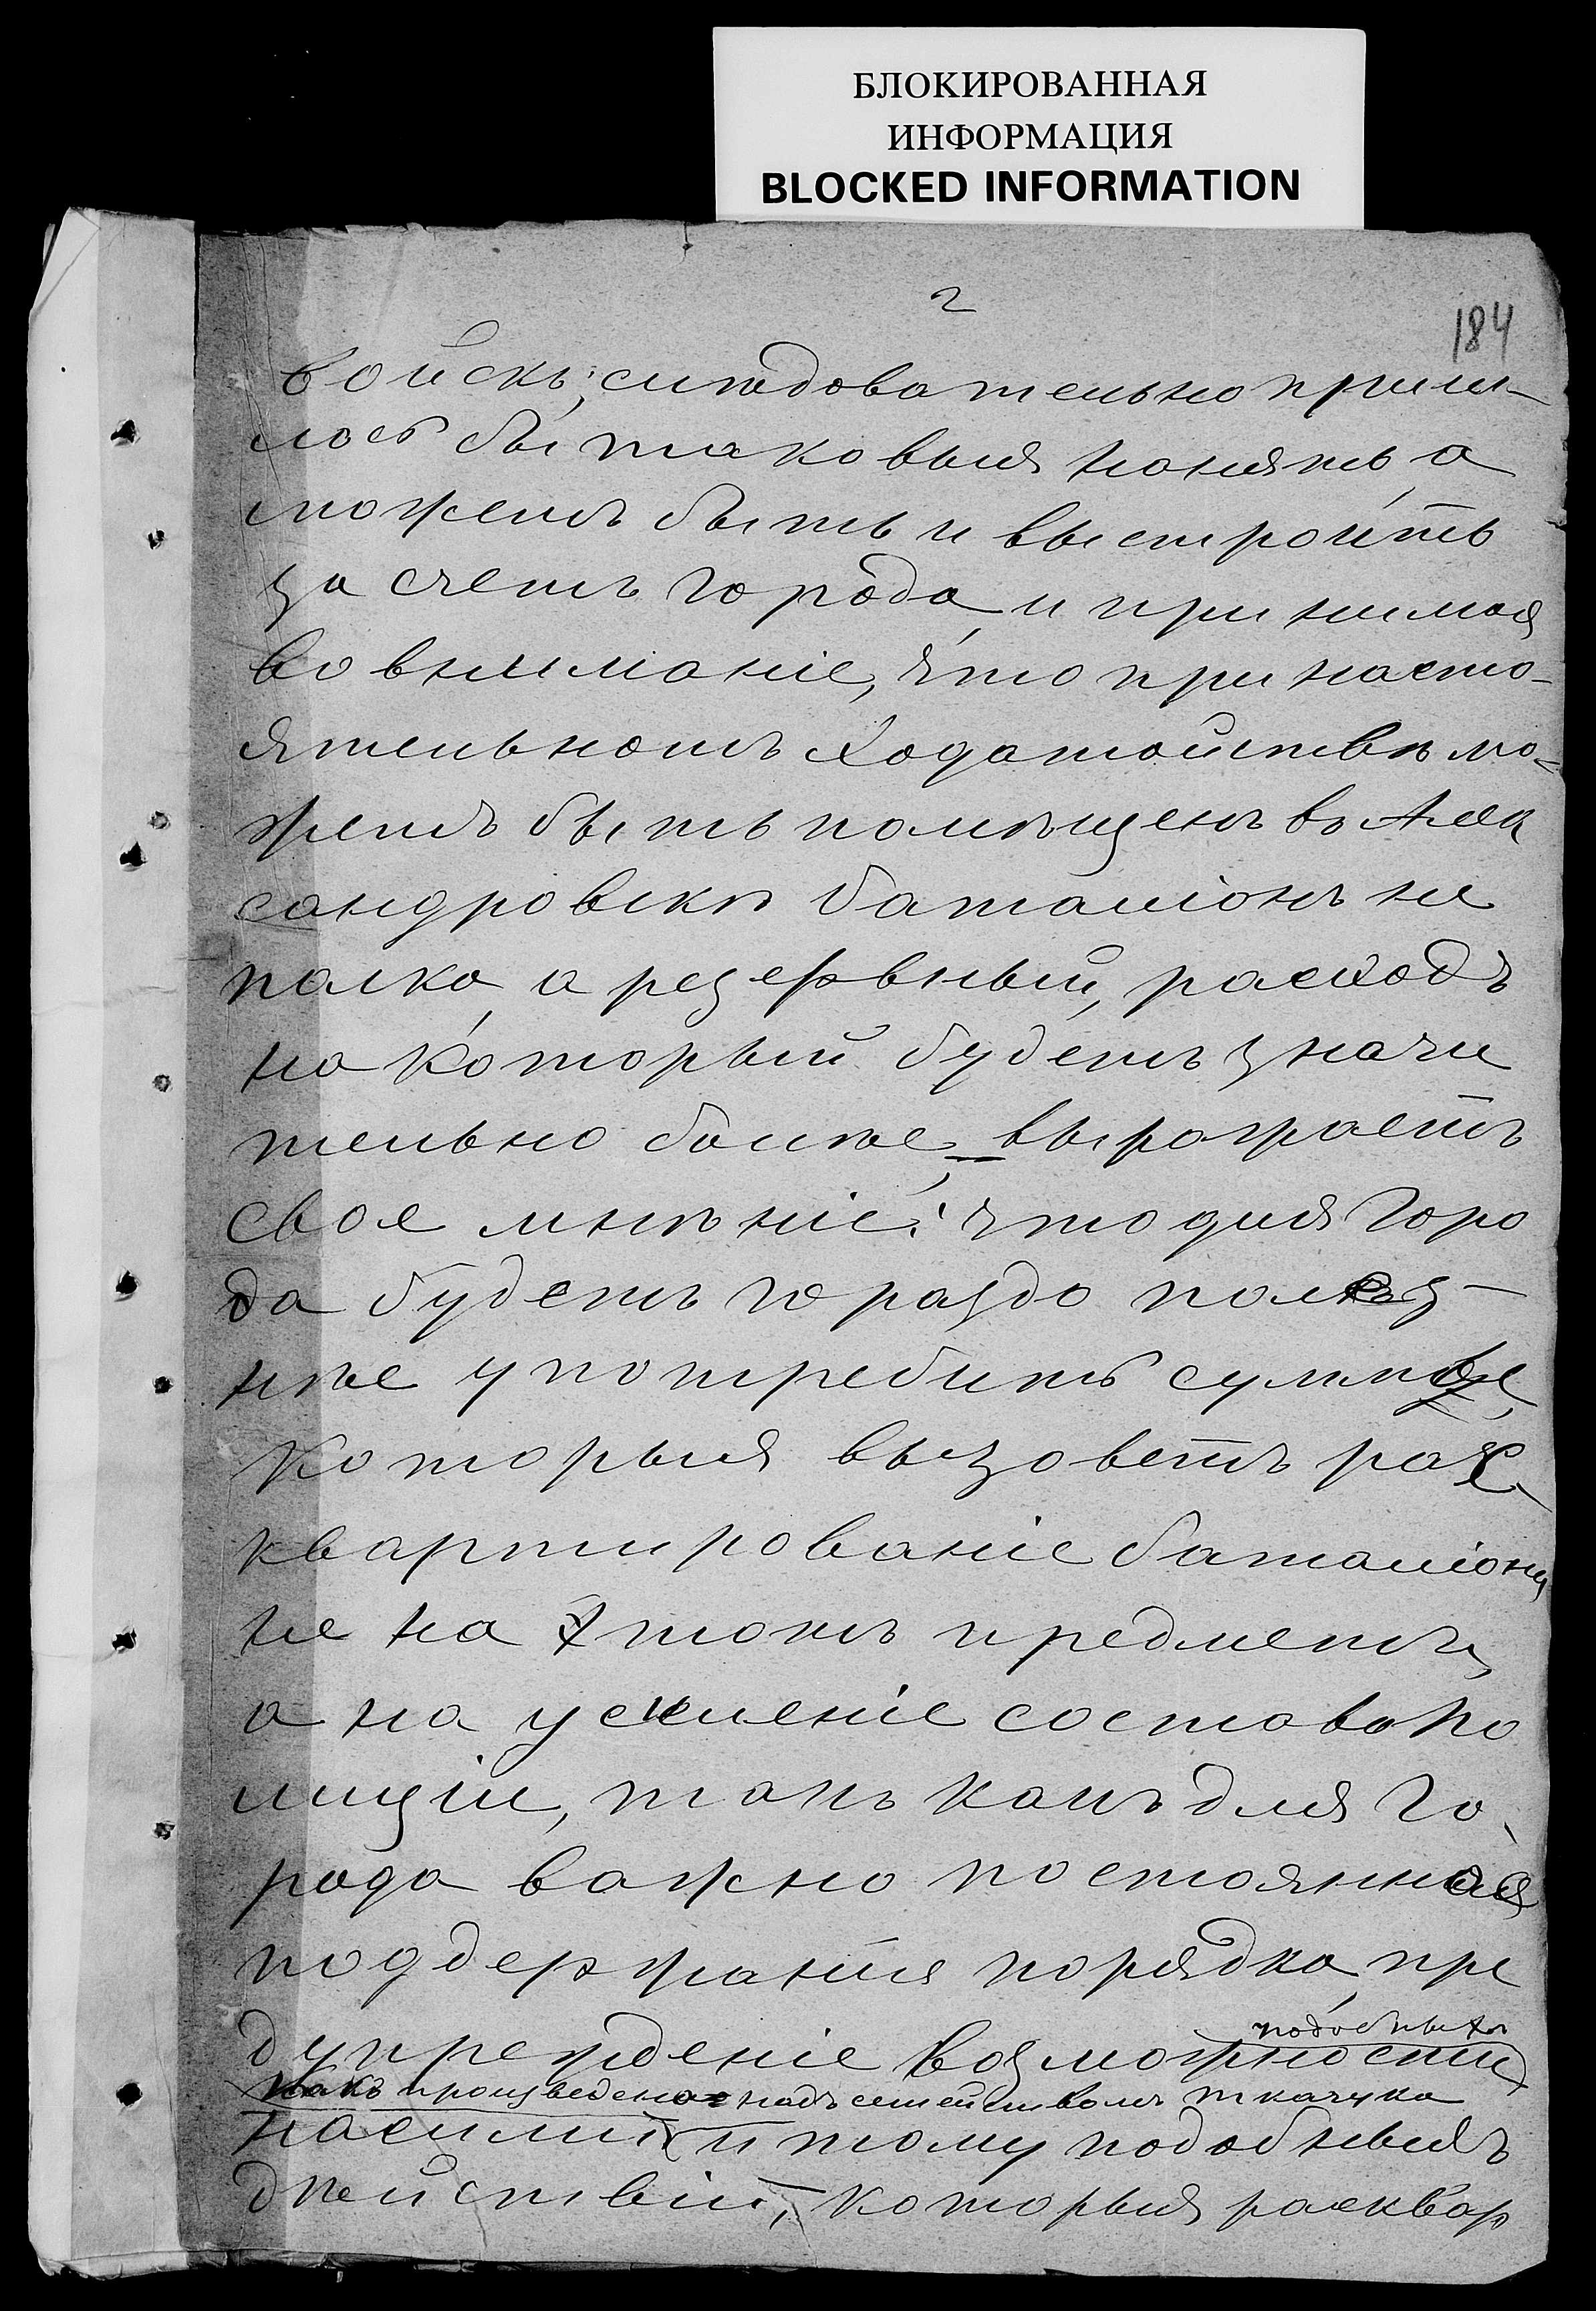 БЛОКИРОВАННАЯ
ИНФОРМАЦИЯ
BLOCKED INFORMATION
2
184
войскъ; слѣдовательно приш-
лось бы таковыя нонять, а
можетъ быть и выстроить
за счетъ города, и принимая
во вниманіе, что при насто-
ятельномъ ходатойствѣ мо-
жетъ быть помѣщенъ въ Алек
сандровскѣ баталіонъ не
полка, а резервный, расходъ
на который будетъ значи
тельно болѣе, выражаетъ
свое мнѣніе: что для горо
да будетъ гораздо полез-
нѣе употребить суммы,
которыя вызоветъ рас-
квартированіе баталіона
не на этотъ предметъ,
а на усиленіе состава по
лиціи, такъ какъ для го-
рода важно постоянное
поддержаніе порядка, пре
дупрежденіе возможности подобныхъ
какъ произведено надъ семействомъ ткачука
насилій и тому подобныхъ
дѣйствій, которыя расквар